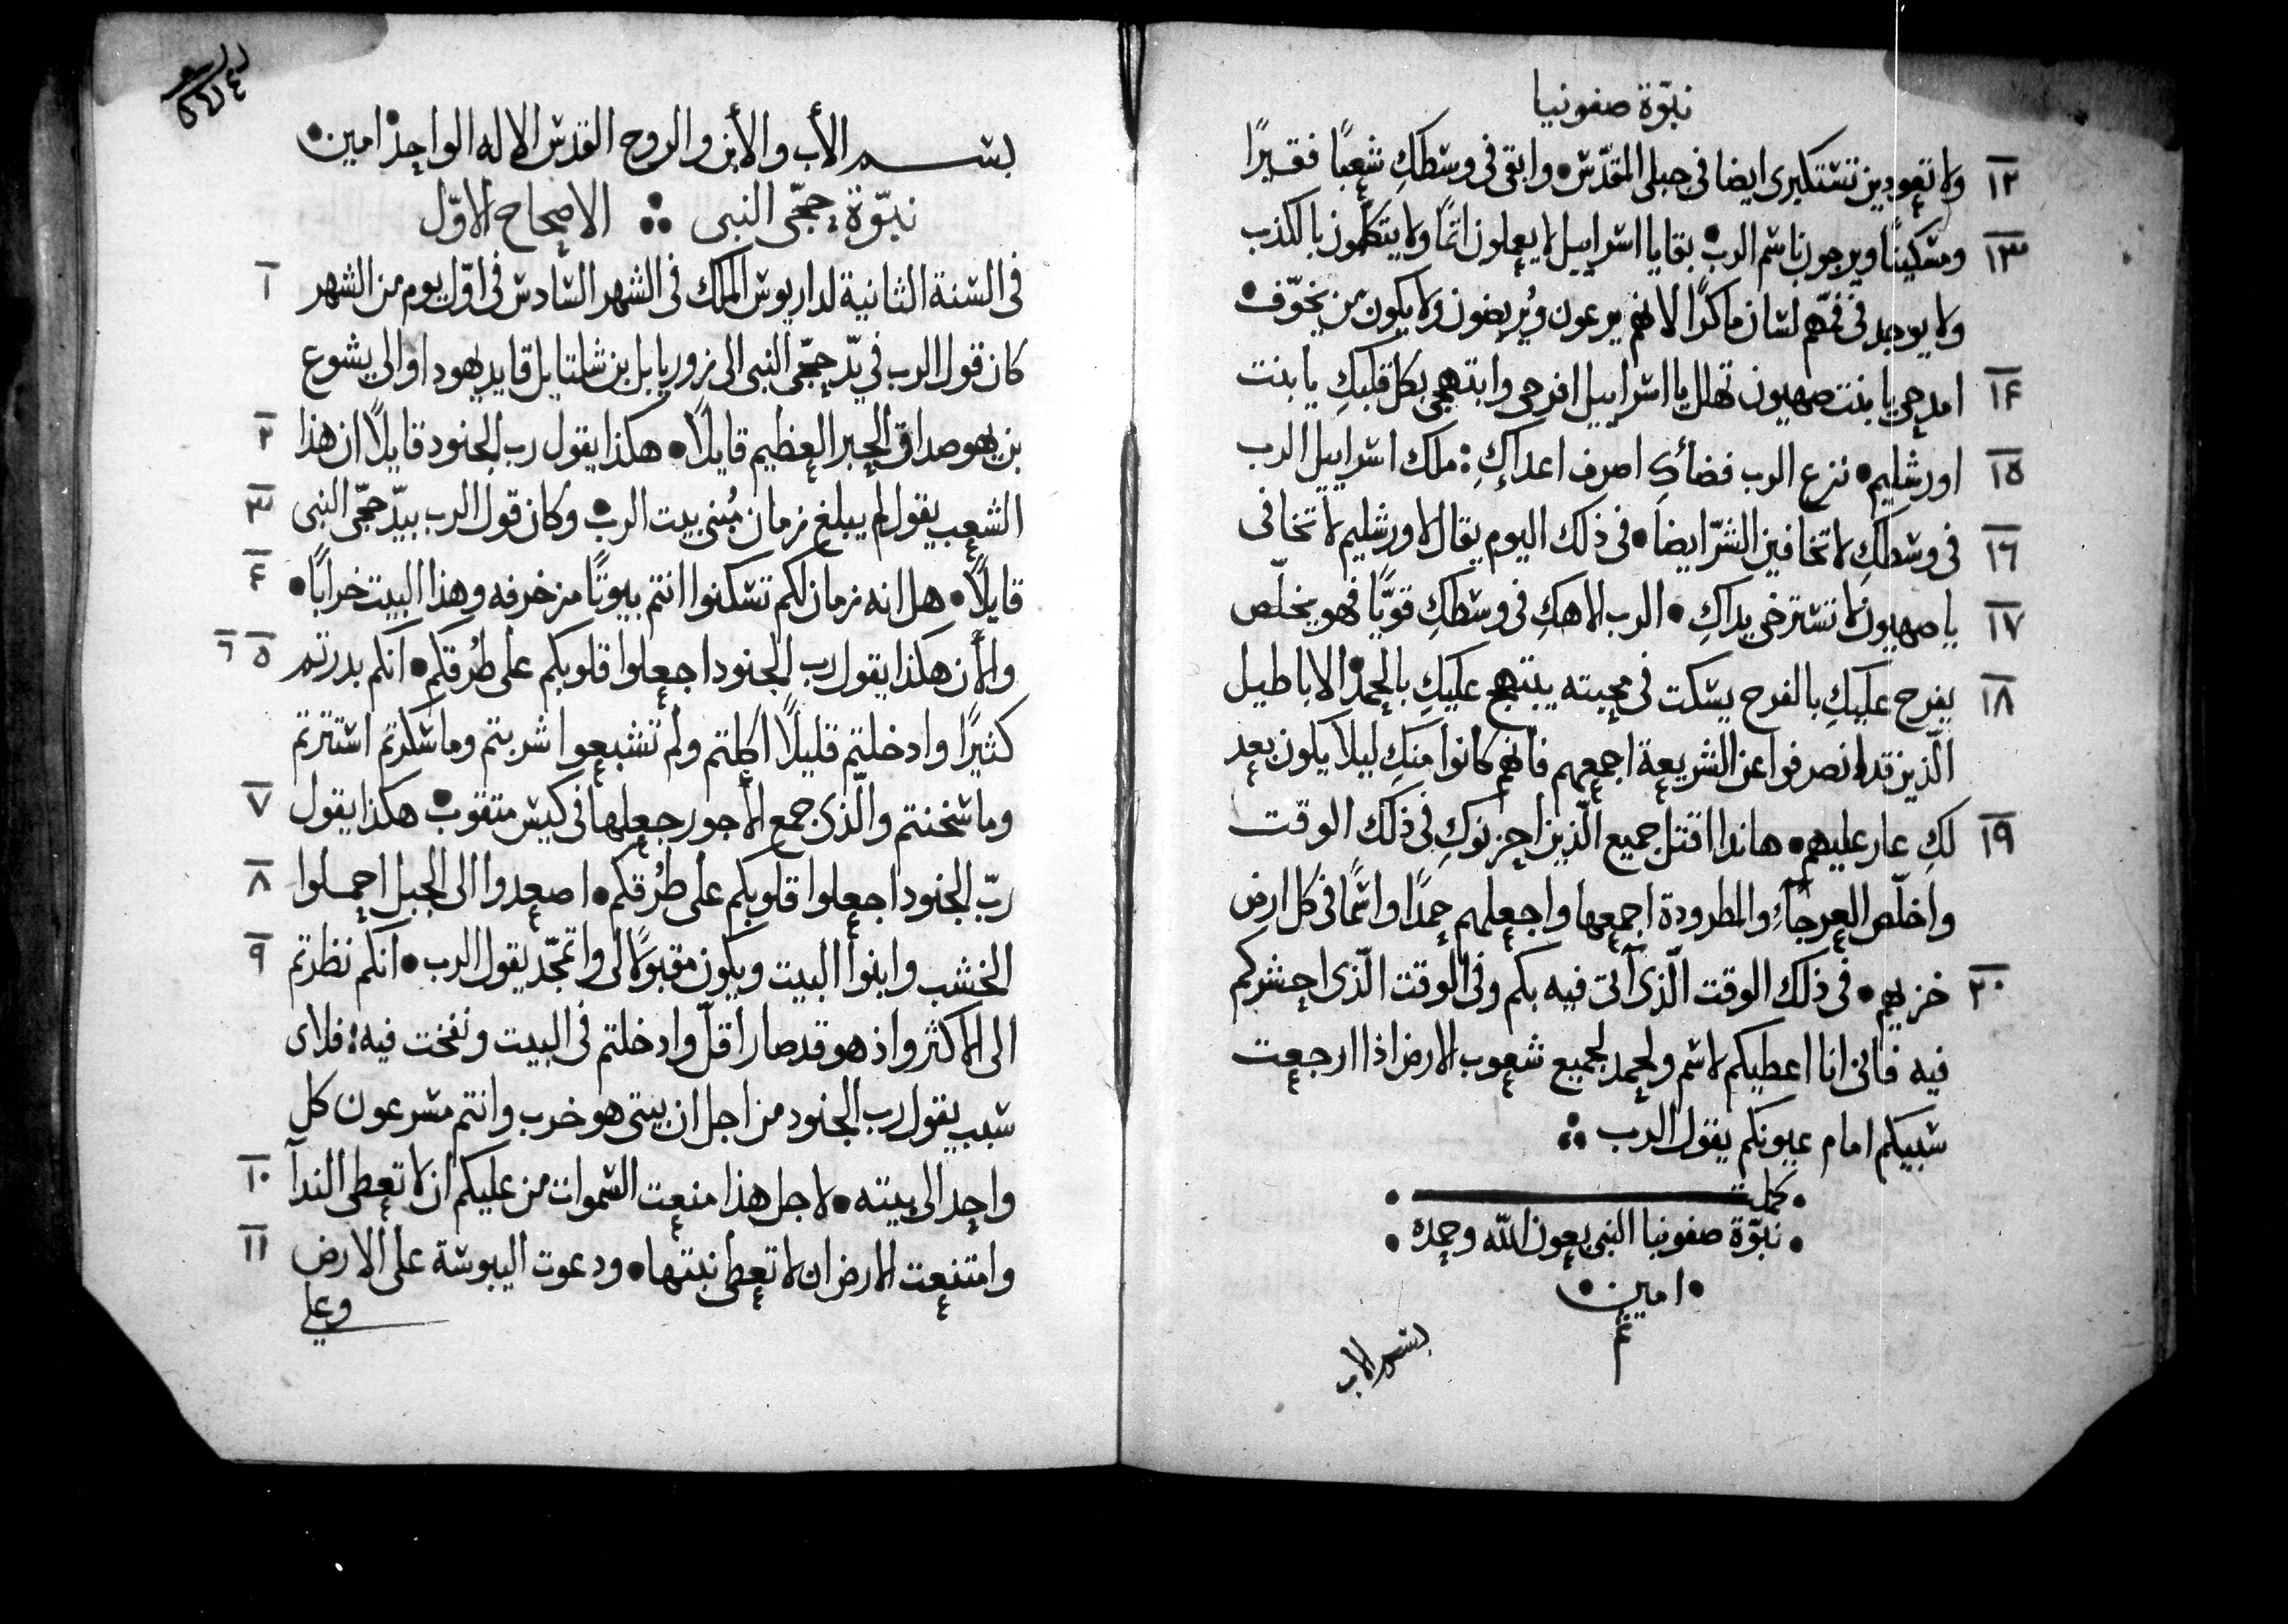 نبوّة صفونيا
١٢ ولا تعودين تستكبرى ايضا فى جبلى المقدّس • وابقى فى وسطكِ شعبًا فقيرًا
١٣ ومسكينًا ويرجون باسم الرب • بقايا اسراييل لا يعملون اثمًا ولا يتكلمون بالكذب
ولا يوجد فى فمهم لسان ماكرًا لانهم يرعون ويُربضون ولا يكون من يخوّف •
١٤ امدحى يا بنت صهيون تهلل يا اسراييل افرحى وابتهجى بكل قلبكِ يا بنت
١٥ اورشليم • نزع الرب قضأكِ اصرف اعداكِ : ملك اسراييل الرب
١٦ فى وسطكِ لا تخافين الشرّ ايضا • فى ذلك اليوم يقال لاورشليم لا تخافى
١٧ يا صهيون لا تسترخى يداكِ • الرب الاهكِ فى وسطكِ قويًّا فهو يخلّص
١٨ يفرح عليكِ بالفرح يسكت فى محبته يبتهج عليكِ بالحمد • الاباطيل
الّذين قد انصرفوا عن الشريعة اجمعهم فانهم كانوا منكِ ليلا يكون بعد
١٩ لكِ عار عليهم • هانذا اقتل جميع الّذين احزنوكِ فى ذلك الوقت
واخلّص العرجاء والمطرودة اجمعها واجعلهم حمدًا واسمًا فى كل ارض
٢٠ خزيهم • فى ذلك الوقت الّذى آتى فيه بكم وفى الوقت الّذى احشركم
فيه فانى انا اعطيكم لاسم ولحمد لجميع شعوب الارض اذا ارجعت
سبيكم امام عيونكم يقول الرب ∴
• كملت •
• نبوّة صفونيا النبى بعون الله وحمده •
• امين •
بسم الاب
بسم الأب والأبن والروح القدس الاله الواحد امين •
نبوّة حجّى النبى ∴ الاصحاح الاوّل
١ فى السنة الثانية لداريوس الملك فى الشهر السادس فى اوّل يوم من الشهر
كان قول الرب فى يدّ حجّى النبى الى زوربابل بن شلتايل قايد يهودا والى يشوع
٢ بن يهوصداق الحبر العظيم قايلًا • هكذا يقول رب الجنود قايلًا ان هذا
٣ الشعب يقول لم يبلغ زمان مُبنى بيت الرب • وكان قول الرب بيدّ حجّى النبى
٤ قايلًا • هل انه زمان لكم تسكنوا انتم بيوتًا مزخرفه وهذا البيت خرابًا •
٥ ٦ والأن هكذا يقول رب الجنود اجعلوا قلوبكم على طُرقكم • انكم بدرتم
كثيرًا وادخلتم قليلًا اكلتم ولم تشبعوا شربتم وما سكرتم استترتم
٧ وما سخنتم والّذى جمع الأجور جعلها فى كيس متقوب • هكذا يقول
٨ ربّ الجنود اجعلوا قلوبكم على طُرقكم • اصعدوا الى الجبل احملوا
٩ الخشب وابنوا البيت ويكون مقبولًا لى واتمجّد يقول الرب • انكم نظرتم
الى الاكثر واذ هو قد صار اقلّ وادخلتم فى البيت ونفخت فيه : فلاى
سبب يقول رب الجنود من اجل ان بيتى هو خرب وانتم مسرعون كل
١٠ واحد الى بيته • لاجل هذا منعت السموات من عليكم ان لا تعطى الندآ
١١ وامتنعت الارض ان لا تعطى نبتها • ودعوت اليبوسة على الارض
وعلى